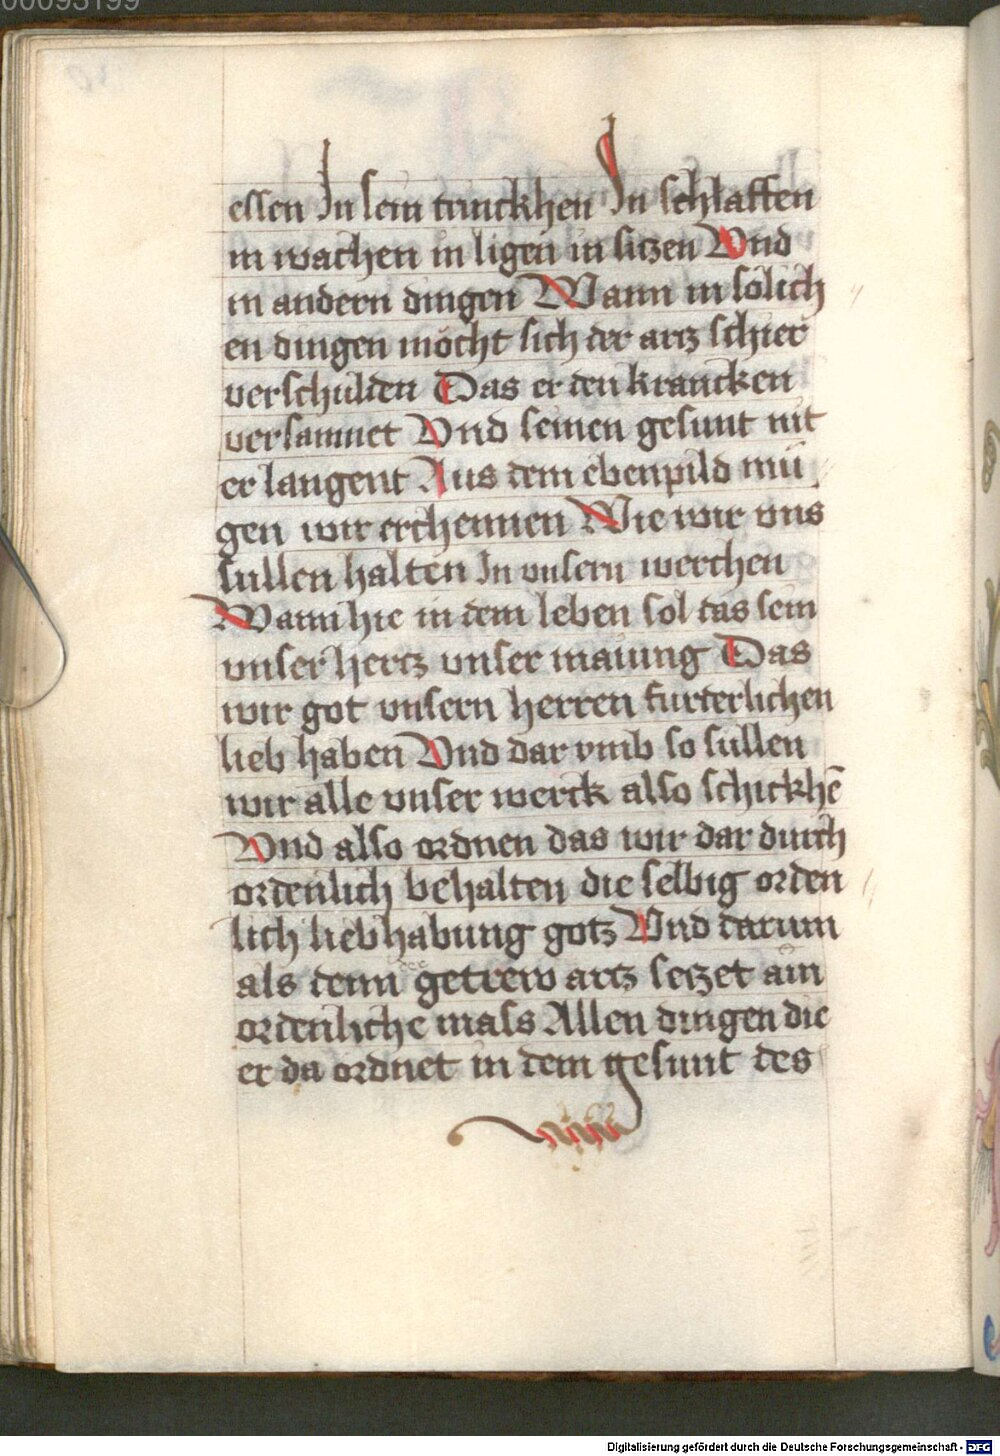 00093199
essen In sein trinckhen In schlaffen
in wachen in ligen in sitzen Vnd
in andern dingen Wann in sölich
en dingen möcht sich der artz schier
verschulden Das er den krancken
versaumet Vnd seinen gesunt nit
er langent Aus dem ebenpild mü
gen wir erchennen Wie wir vns
sullen halten In vnsern werchen
Wann hie in dem leben sol das sein
vnser hertz vnser mainung Das
wir got vnsern herren furderlichen
lieb haben Vnd dar vmb so sullen
wir alle vnser werck also schickhē
Vnd also ordnen das wir dar durch
ordenlich behalten die selbig orden
lich liebhabung gotz Vnd darum
als denn getrew artz setzet ain
ordenliche mass Allen dingen die
er da ordnet in dem gesunt des
Digitalisierung gefördert durch die Deutsche Forschungsgemeinschaft - DFG